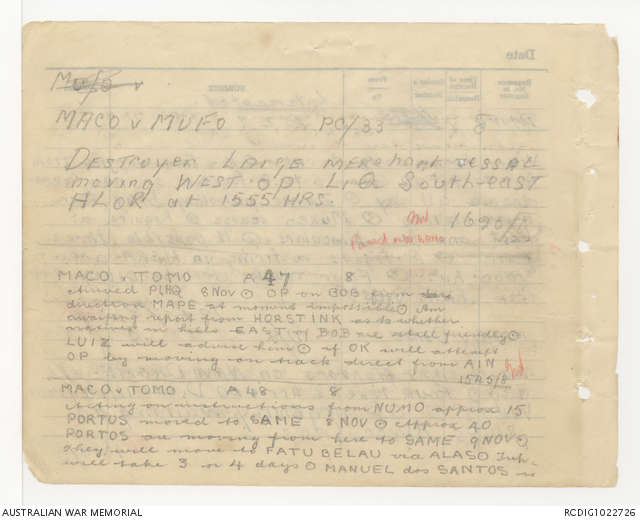 Date
Mufo v
MACO v MUFO PC/33
DESTROYER LARGE MERCHANT VESSAEL
moving WEST OP LIQ South-east
ALOR at 1555 HRS.
1620/8
MACO v TOMO A 47 8
arrived PLHQ 8 Nov ⊙ OP on BOB from
direction MAPE at moment impossible ⊙ Am
awaiting report from HORSTINK as to whether
natives in hills EAST of BOB are still friendly ⊙
LUIZ will advise him ⊙ if OK will attempt
OP by moving on track direct from AIN
1545/8
MACO v TOMO A 48 8
Acting on instructions from NUMO approx 15
PORTOS moved to SAME 8 NOV ⊙ approx 40
PORTOS are moving from here to SAME 9 NOV ⊙
they will move to FATU BELAU via ALAS ⊙
will take 3 or 4 days ⊙ MANUEL dos SANTOS is
AUSTRALIAN WAR MEMORIAL RCDIG1022726